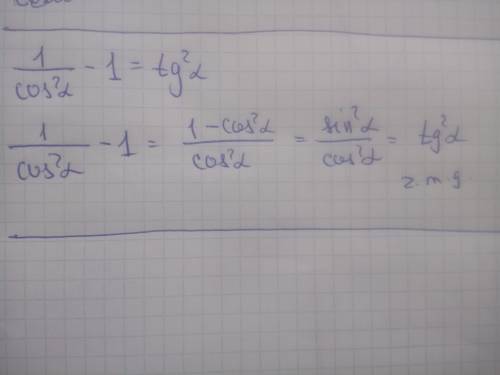 1/cos²α - 1 = tg²α
1/cos²α - 1 = (1 - cos²α)/cos²α = sin²α/cos²α = tg²α
ч.т.д.